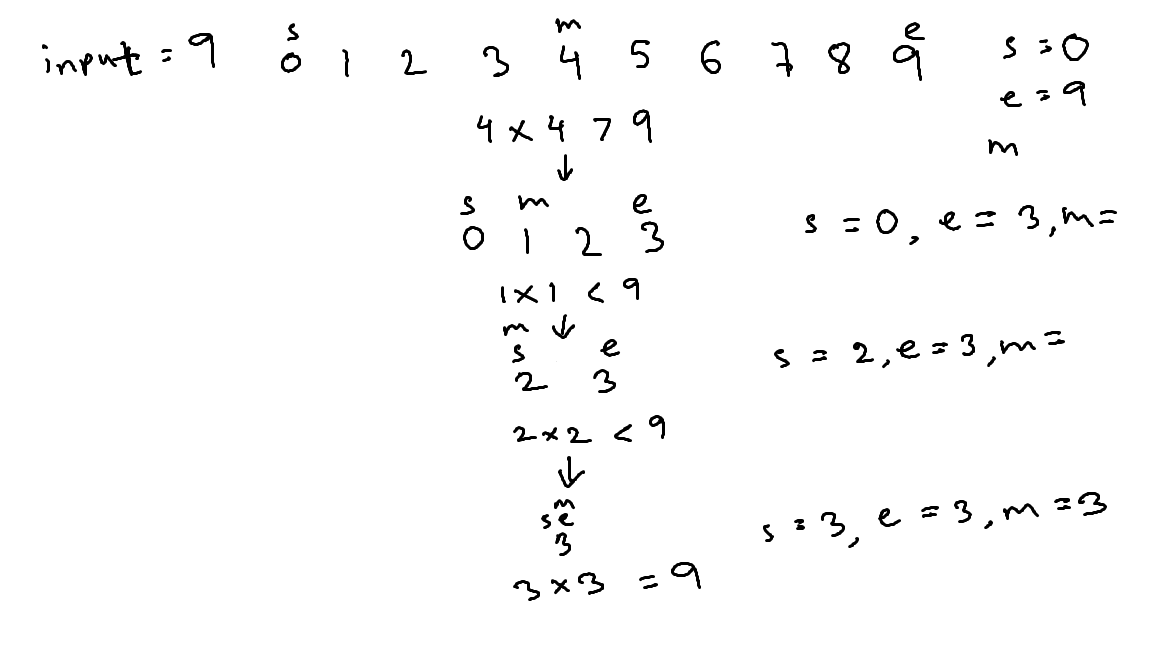 s m e
input = 9 0 1 2 3 4 5 6 7 8 9 s = 0
e = 9
4 x 4 > 9
m
↓
s m e
0 1 2 3 s = 0, e = 3, m =
1 x 1 < 9
m ↓
s e
2 3 s = 2, e = 3, m =
2 x 2 < 9
↓
m
s e
3 s = 3, e = 3, m = 3
3 x 3 = 9